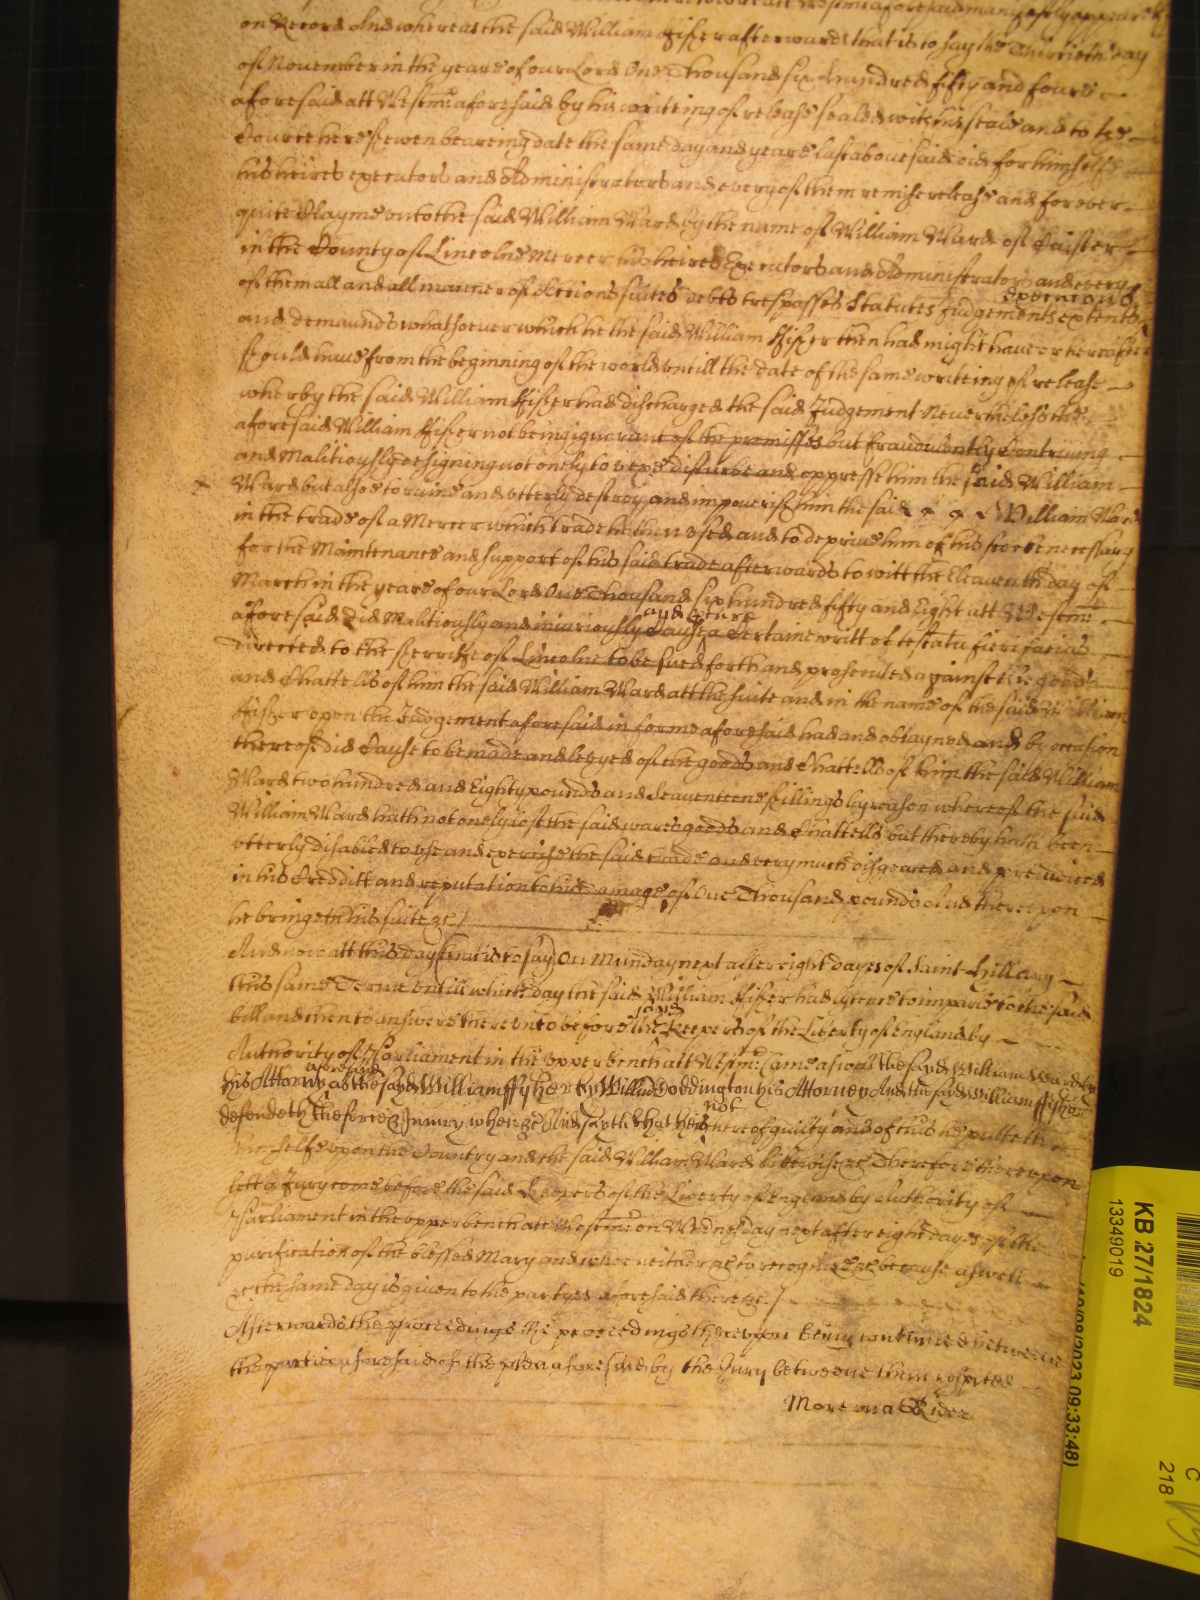 on Record And whereas the said William ffisher afterwards that is to say the Thirtieth day
of November in the yeare of our Lord One Thousand six hundred fifty and foure
aforesaid att Westmr aforesaid by his writeing of release sealed with his seale and to the
Court here shewen beareing date the same day and yeare last abovesaid did for himselfe
his heires executors and Administrators and every of them remise release and for ever
quite Clayme unto the said William Ward by the name of William Ward of Caister
in the County of Lincolne Mercer his heires Executors and Administrators and every
of them all and all manner of Accions suites debts trespasses Statutes Judgements extents
execucons
and demaunds whatsoever which he the said William ffisher then had might have or hereafter
should have from the beginning of the world untill the date of the same writeing of release
wherby the said William ffisher had discharged the said Judgement Neverthelesse the
aforesaid William ffisher not being ignorant of the premisses but fraudulently Contriving
and Malitiously designing not onely to vexe disturbe and oppresse him the said William
Ward but alsoe to ruine and utterly destroy and impoverish him the said William Ward
in the trade of a Mercer which trade he then used and to deprive him of his necessary
for the Maintenance and support of his said trade afterwards to witt the Eleaventh day of
March in the yeare of our Lord One Thousand six hundred fifty and Eight att Westmr
aforesaid did Malitiously and iniuriously Cause a Certaine writt of testatu fieri facias
and
directed to the sherriffe of Lincolne to be sued forth and prosecuted against the goods
and Chattells of him the said William Ward att the suite and in the name of the said William
ffisher upon the Judgement aforesaid in forme aforesaid had and obtayned and by occasion
thereof did Cause to be made and levyed of the goods and Chattells of him the said William
Ward two hundred and Eighty pounds and seaventeene shillings by reason whereof the said
William Ward hath not onely lost the said wares goods and Chattells but thereby hath been
utterly disabled to use and exercise the said trade and very much disgraced and preiudiced
in his Creditt and reputation to his damage of One Thousand pounds And thereupon
he bringeth his suite &c
And now att this day (that is to say) On Munday next after eight dayes of Saint Hillary
this same Terme untill which day the said William ffisher had lycence to imparle to the said
bill and then to answere thereunto before the Keepers of the Liberty of England by
said
Authority of Parliament in the upper bench att Westmr Came aswell the sayd William Ward by
his Attorny aforesaid as the sayd William ffysher by Willm Doddington his Attorney And the sayd William ffisher
defendeth the force & Iniury when &c And sayth that he is not thereof guilty and of this he putteth
himselfe upon the Country and the said William Ward likewise &c Therefore thereupon
lett a Jury come before the said Keepers of the Liberty of England by Authority of
Parliament in the upper bench att Westmr on Wednesday next after eight dayes of the
purification of the blessed Mary and who neither &c to recognize &c because aswell
&c the same day is given to the partyes aforesaid there &c
Afterwards the proceedings the proceedings thereupon being continued betweene
the parties aforesaid of the plea aforesaid by the Jury betweene them respited
More on a Rider
KB 27/1824
13349019
09:33:48)
C
218